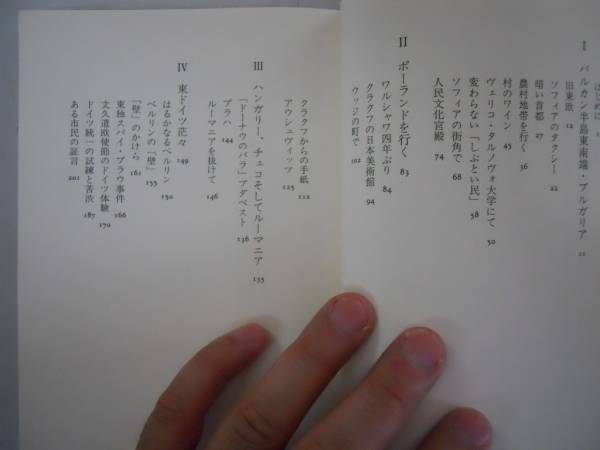 はじめに 1
I バルカン半島東南端・ブルガリア 11
旧東欧 12
ソフィアのタクシー 22
暗い首都 27
農村地帯を行く 36
村のワイン 45
ヴェリコ・タルノヴォ大学にて 50
変わらない「しぶとい民」 58
ソフィアの街角で 68
人民文化宮殿 74
II ポーランドを行く 83
ワルシャワ四年ぶり 84
クラクフの日本美術館 94
ウッジの町で 102
クラクフからの手紙 112
アウシュヴィッツ 125
III ハンガリー、チェコそしてルーマニア 135
「ドーナウのバラ」ブダペスト 136
プラハ 144
ルーマニアを抜けて 146
IV 東ドイツ茫々 149
はるかなるベルリン 150
ベルリンの「壁」 155
「壁」のかけら 161
東独スパイ・ブラウ事件 166
文久遣欧使節のドイツ体験 179
ドイツ統一の試練と苦渋 187
ある市民の証言 201